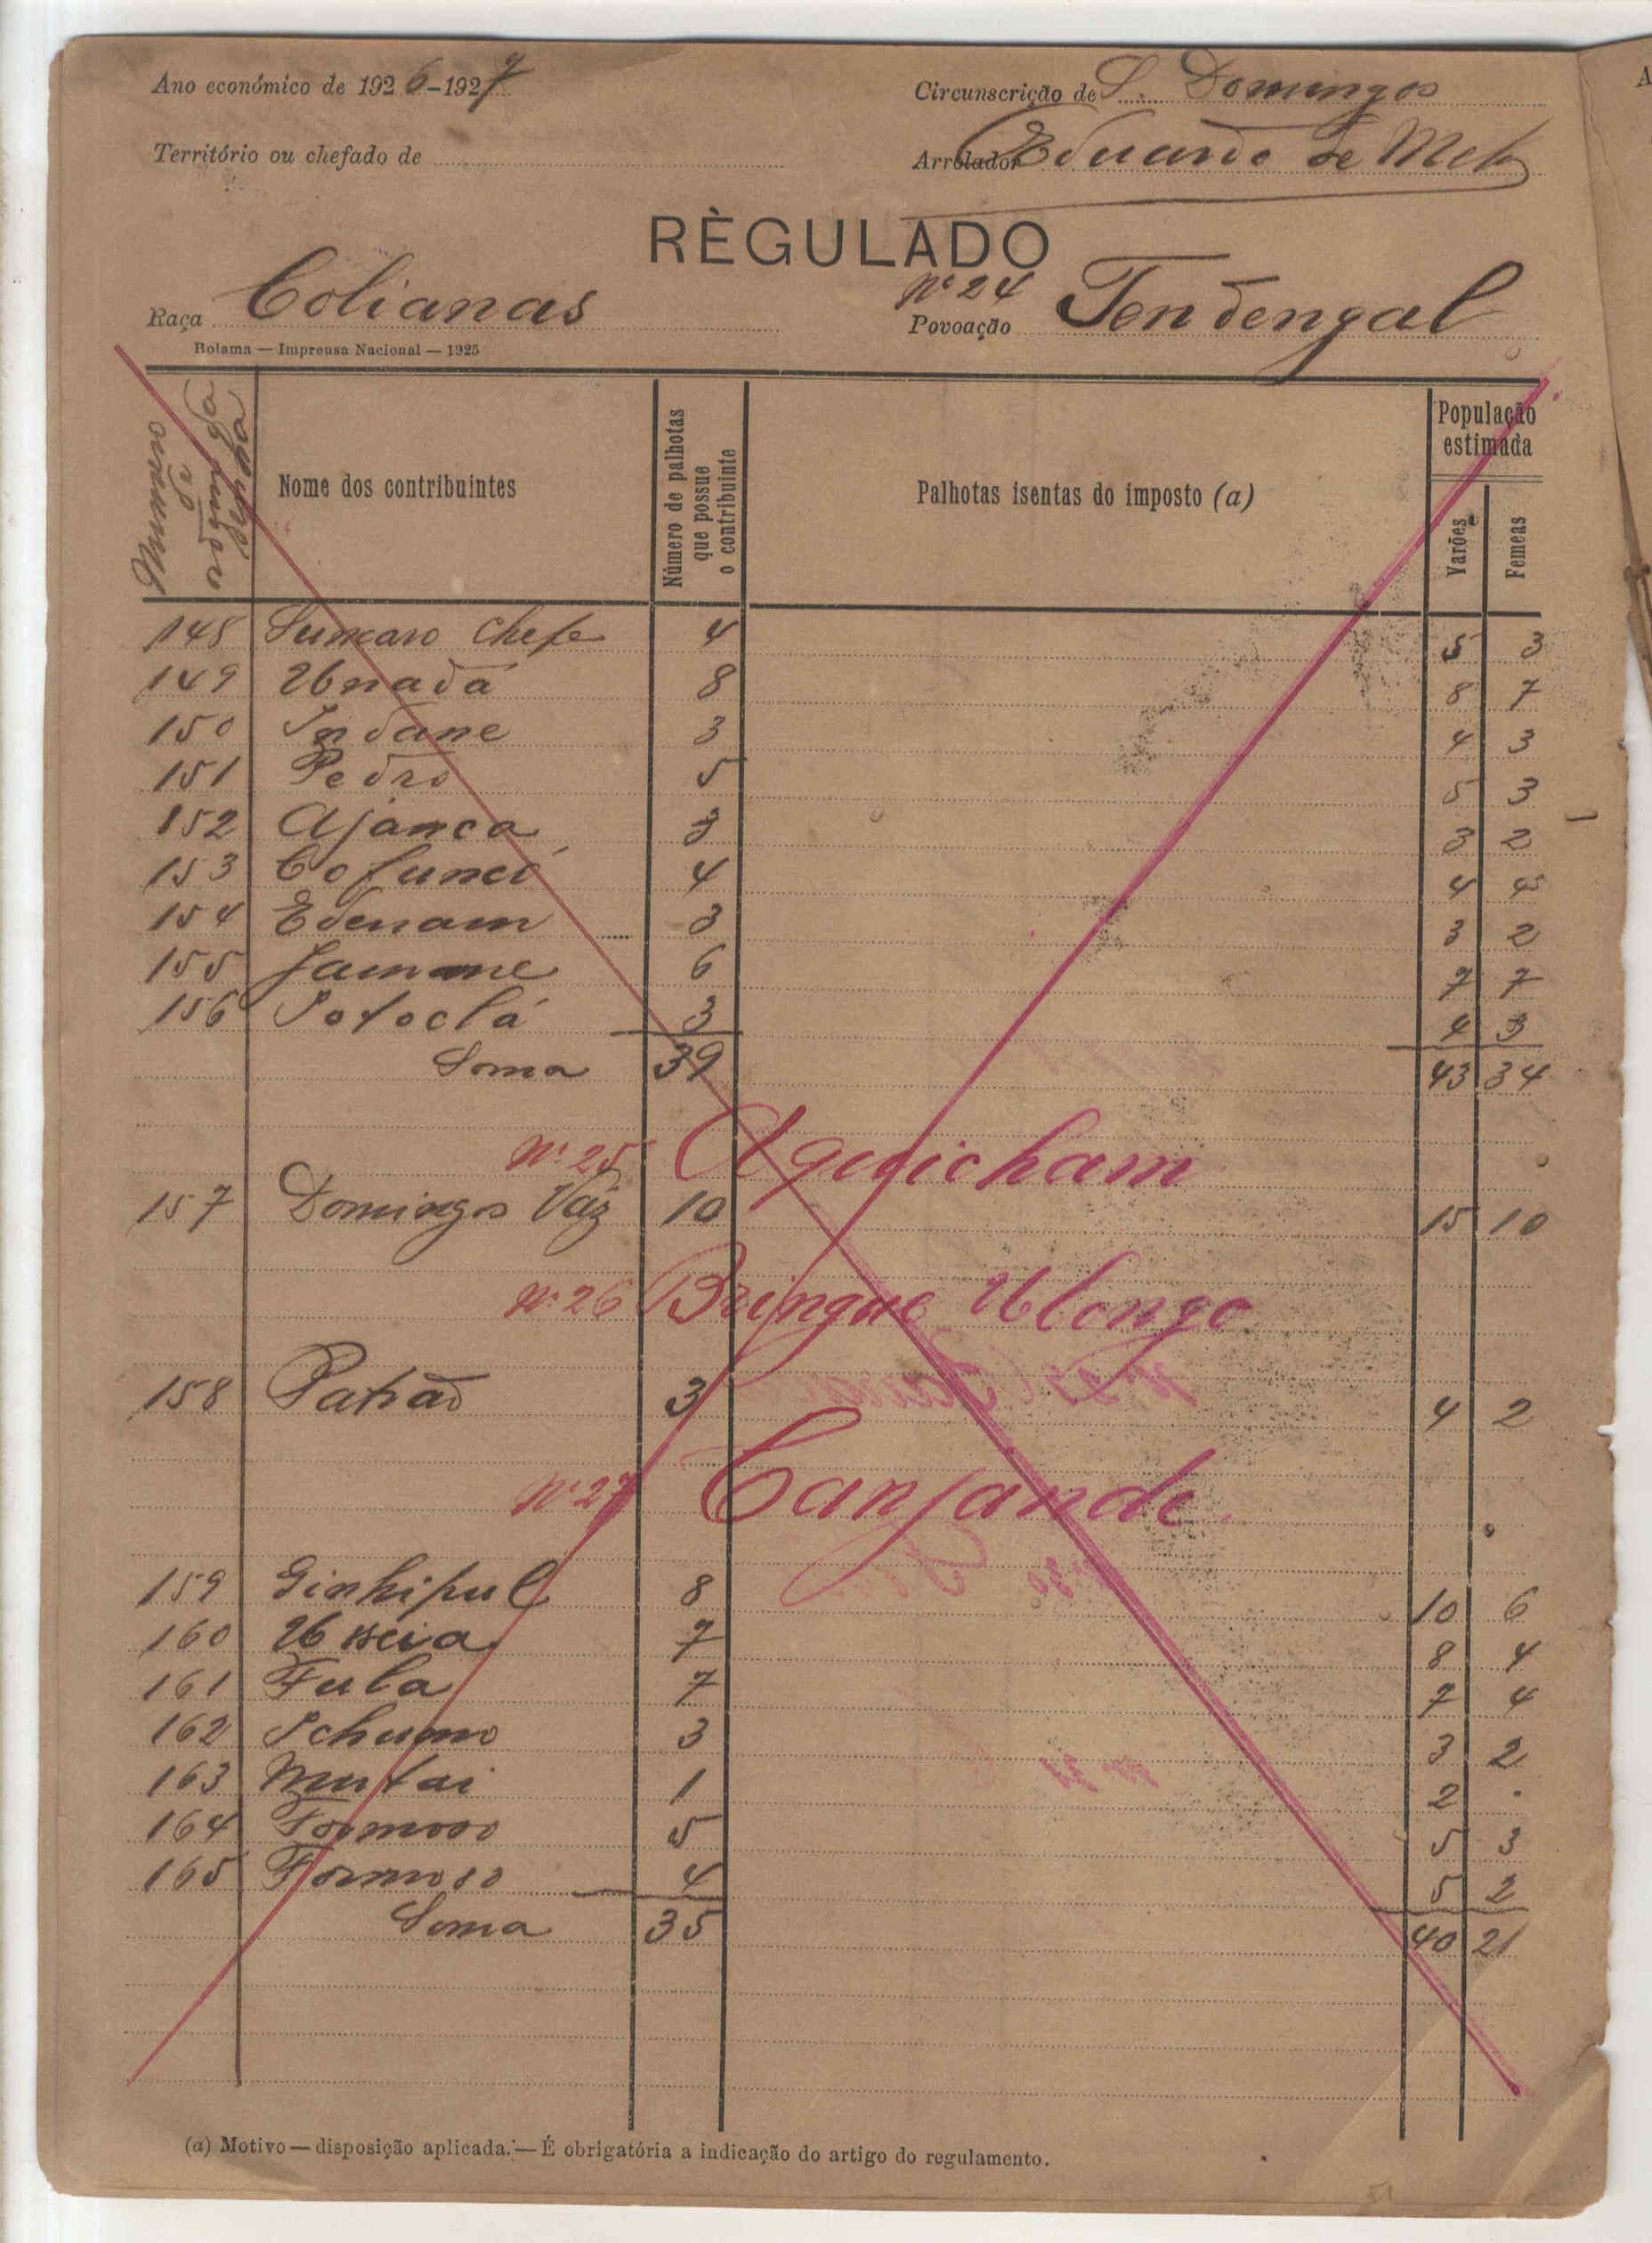 Ano económico de 1926-1927 Circunscrição de S. Domingos
Território ou chefado de Arrolador Eduardo de Melo
RÈGULADO
Raça Colianas Nº 24 Povoação Tendengal
Bolama — Imprensa Nacional — 1925
Numero
Nome dos contribuintes
Número de palhotas que possue o contribuinte
Palhotas isentas do imposto (a)
População estimada
Varões Femeas
148 Sumaro Chefe 4 5 3
149 Unadá 8 8 7
150 Indane 3 4 3
151 Pedro 5 5 3
152 Ajanca 3 3 2
153 Cofunció 4 4 4
154 Edenam 3 3 2
155 Jamane 6 7 7
156 Potoclá 3 4 3
Soma 39 43 34
Nº 25 Aguicham
157 Domingos Vaz 10 15 10
Nº 26 Bringue Ulongo
158 Patrão 3 4 2
Nº 27 Canjande
159 Ginhipul 8 10 6
160 Usseia 7 8 4
161 Fula 7 7 4
162 Schumo 3 3 2
163 Muntai 1 2 .
164 Formoso 5 5 3
165 Formoso 4 5 2
Soma 35 40 21
(a) Motivo — disposição aplicada. — É obrigatória a indicação do artigo do regulamento.